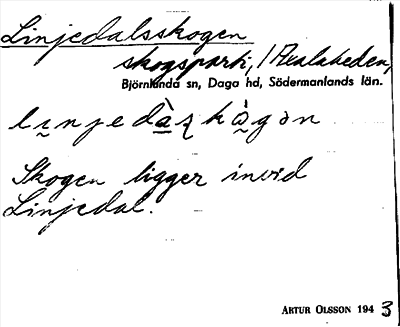 Linjedalsskogen
skogsparti, /Akalaheden,
Björnlunda sn, Daga hd, Södermanlands län.
li̭njedà̱ʂkå̭̀gən
Skogen ligger invid
Linjedal.
ARTUR OLSSON 1943